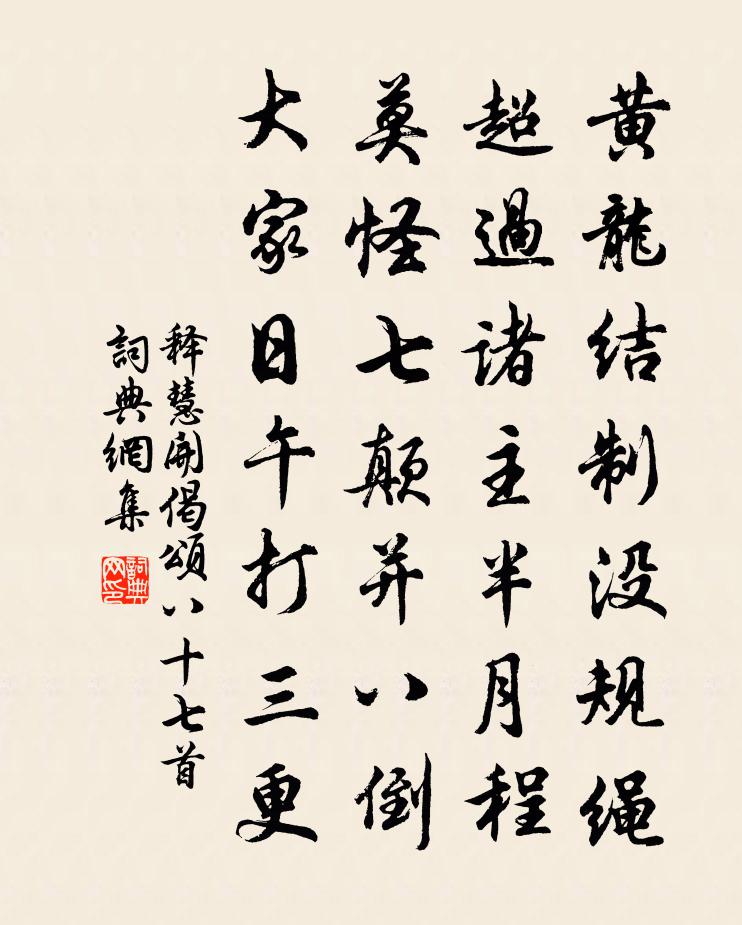 黄龍结制没规绳
超過诸主半月程
莫怪七颠并八倒
大家日午打三更
释慧開偈頌八十七首
詞典網集
詞典網印